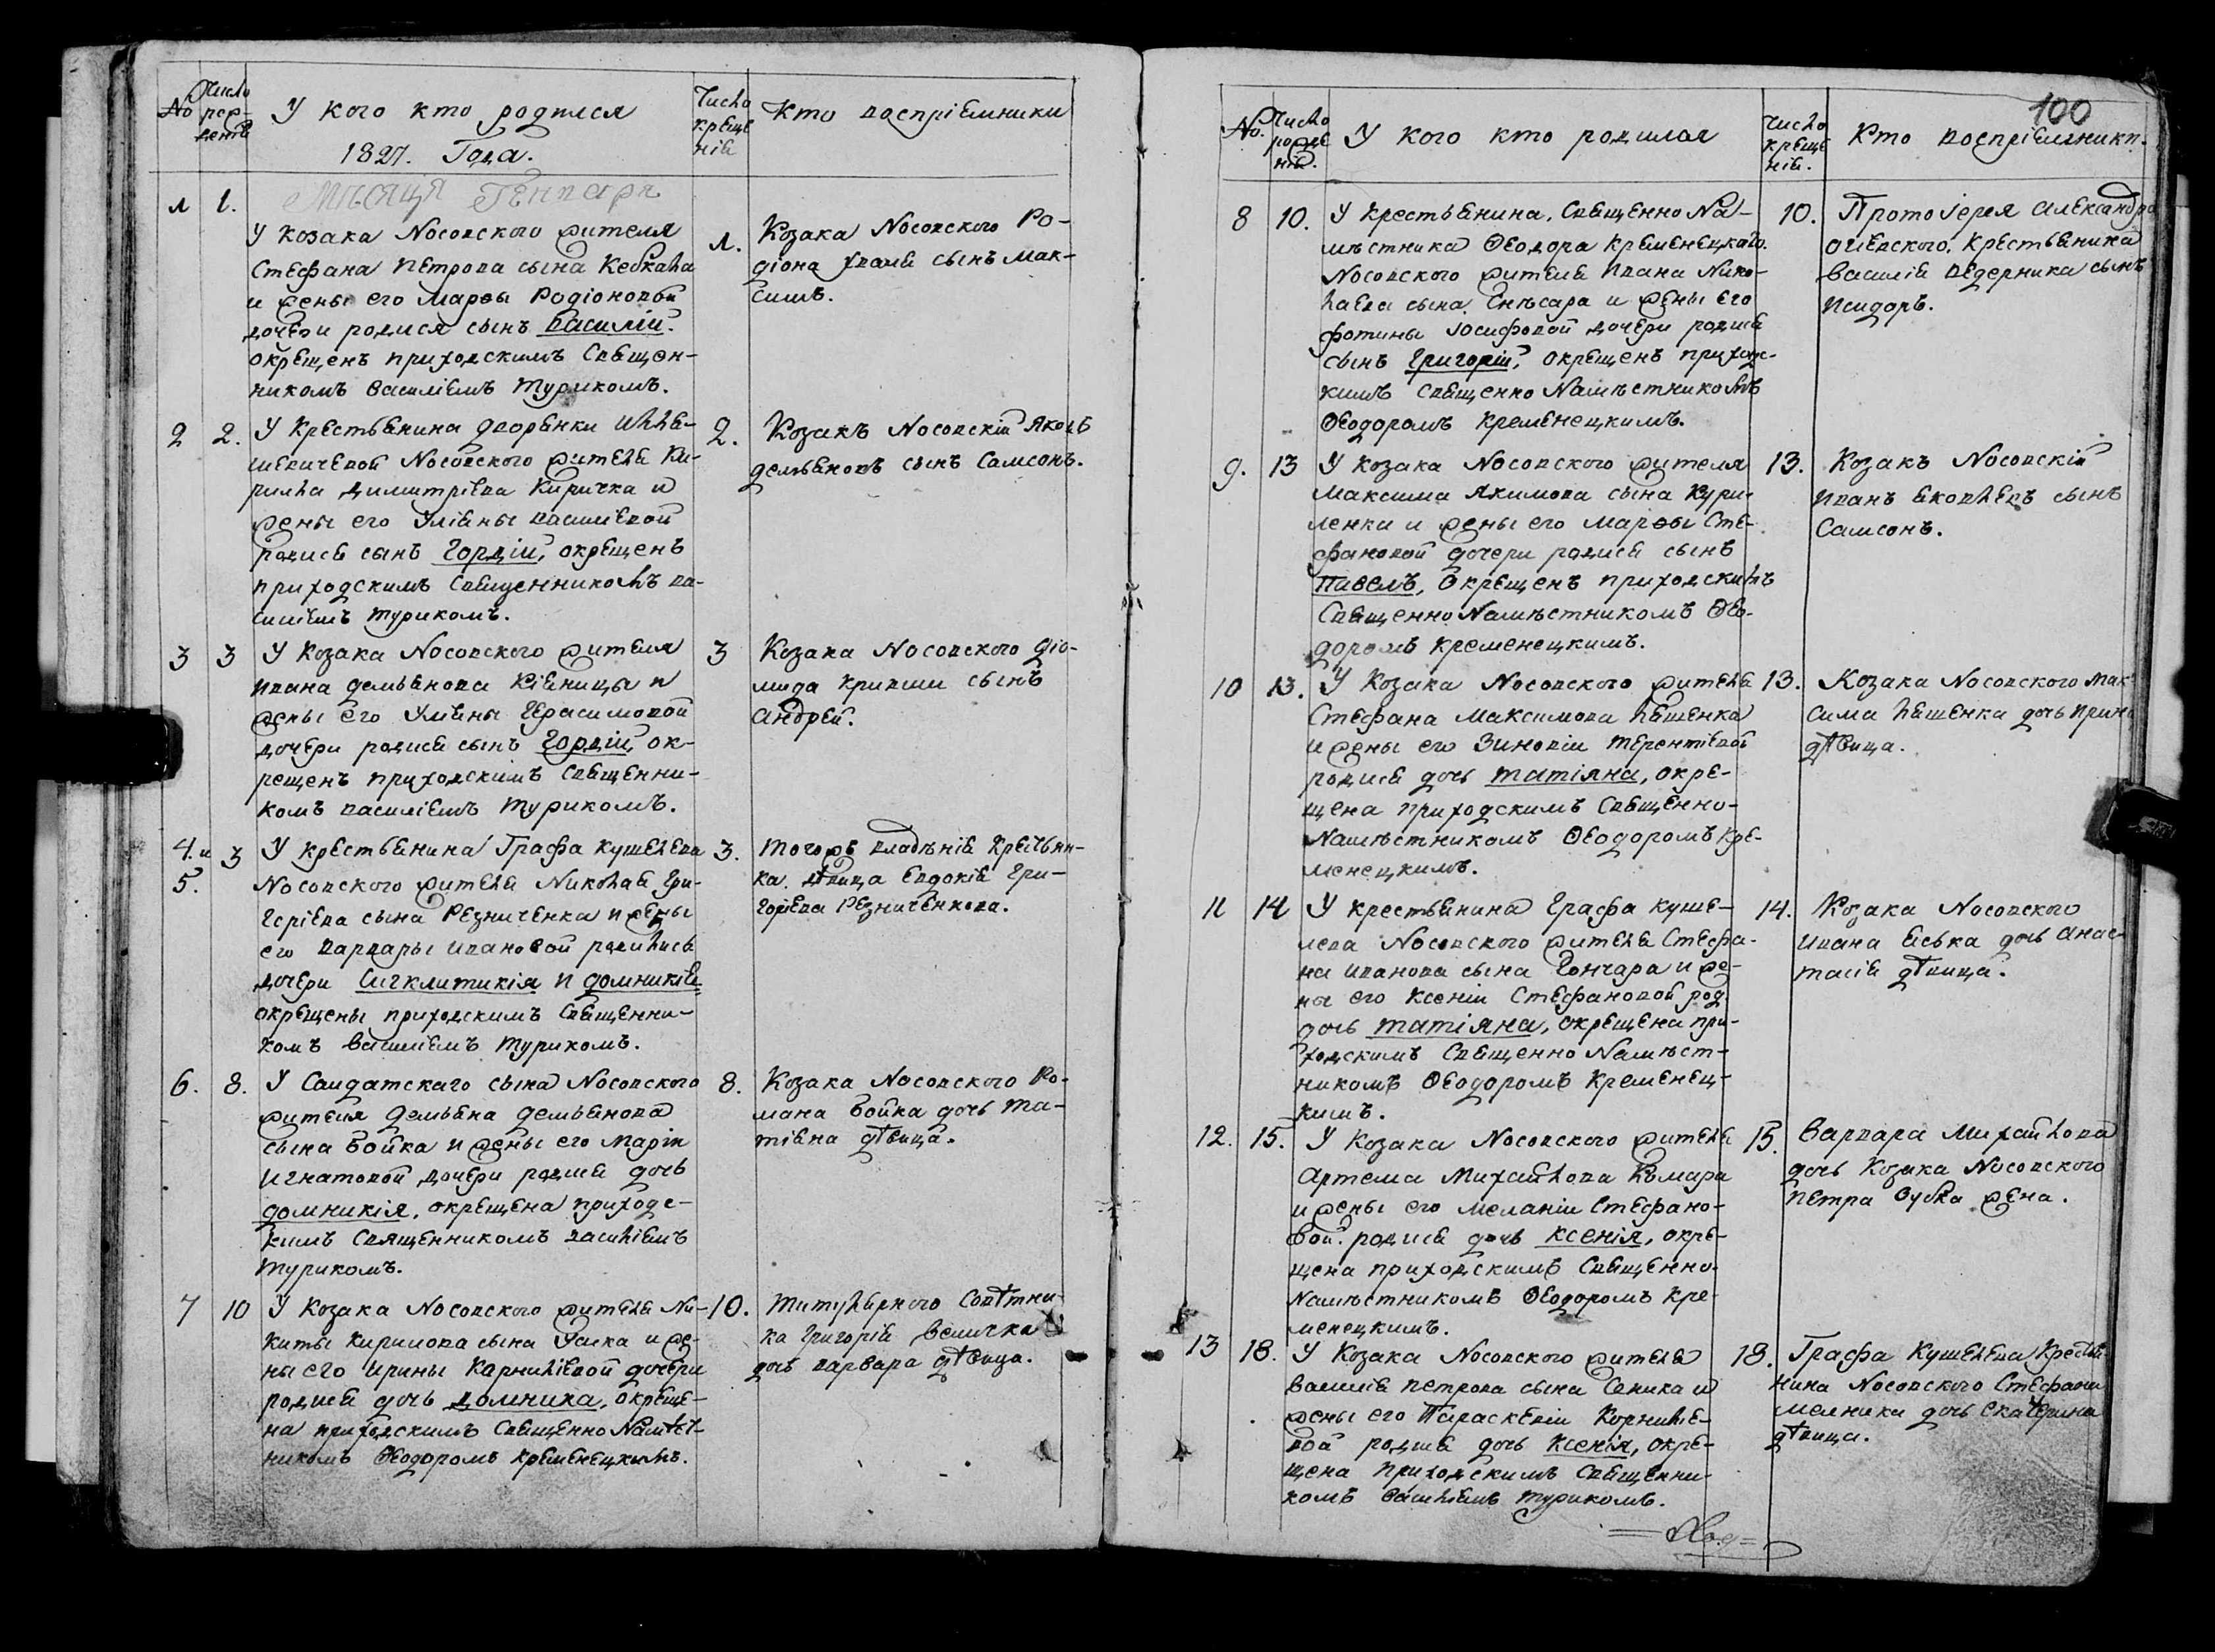 No
Число рож-денія
У кого кто родился
1827. Года.
Число креще нія
Кто воспріемники
Мѣсяця Генваря
1 1.
У козака Носовского жителя
Стефана Петрова сына
и жены его Марѳы Родіоновой
дочери родися сынъ Василій.
окрещенъ приходскимъ Священ-
никомъ Василіемъ Турикомъ.
1.
Козака Носовского Ро-
діона сынъ Мак-
симъ.
2 2.
У крестьянина дворянки
Носовского жителя Ки-
рилла Димитріева Киричка и
жены его Уліяны Василіевой
родися сынъ Гордій, окрещенъ
приходскимъ Священникомъ Ва-
силіемъ Турикомъ.
2.
Козакъ Носовскій Яковъ
Демьяновъ сынъ Самсонъ.
3 3
У Козака Носовского жителя
Ивана Демьянова Кіяницы и
жены его Уліяны Герасимовой
дочери родися сынъ Гордій, ок-
рещенъ приходскимъ Священни-
комъ Василіемъ Турикомъ.
3
Козака Носовского Діо-
мида Кривши сынъ
Андрей.
4. и 5. 3
У крестьянина Графа Кушелева
Носовского жителя Николая Гри-
горіева сына Резниченка и жены
его Варвары Ивановой родились
дочери Сигклитикія и Домникія
окрещены приходскимъ Священни-
комъ Василіемъ Турикомъ.
3.
Тогожъ владѣнія крестьян-
ка дѣвица Евдокія Гри-
горіева Резниченкова.
6. 8.
У Солдатскаго сына Носовского
жителя Демьяна Демьянова
сына Бойка и жены его Маріи
Игнатовой дочери родися дочь
Домникія, окрещена приходс-
кимъ Священникомъ Василіемъ
Турикомъ.
8.
Козака Носовского Ро-
мана Бойка дочь Та-
тіяна дѣвица.
7 10
У Козака Носовского жителя Ни-
киты Кирилова сына и же-
ны его Ирины Карниліевой дочери
родися дочь Домника, окреще-
на приходскимъ Священно Намѣст-
никомъ Ѳеодоромъ Кременецкимъ.
10.
Титулярного Совѣтни-
ка Григорія Величка
дочь Варвара дѣвица.
100
No.
Число рожде нія.
У кого кто родился
Число креще нія.
Кто воспріемники.
8 10.
У крестьянина, Священно На-
мѣстника Ѳеодора Кременецкаго.
Носовского жителя Ивана Нико-
лаева сына Снѣсара и жены его
Фотины Іосифовой дочери родися
сынъ Григорій, окрещенъ приходс-
кимъ Священно Намѣстникомъ
Ѳеодоромъ Кременецкимъ.
10.
Протоіерея Александра
крестьянина
Василія Ведерника сынъ
Исидоръ.
9. 13
У козака Носовского жителя
Максима Якимова сына Кури-
ленки и жены его Марѳы Сте-
фановой дочери родися сынъ
Павелъ, окрещенъ приходскимъ
Священно Намѣстникомъ Ѳео-
доромъ Кременецкимъ.
13.
Козакъ Носовскій
Иванъ Яковлевъ сынъ
Самсонъ.
10 13.
У Козака Носовского жителя
Стефана Максимова Лешенка
и жены его Зиновіи Терентіевой
родися дочь Татіяна, окре-
щена приходскимъ Священно-
Намѣстникомъ Ѳеодоромъ Кре-
менецкимъ.
13.
Козака Носовского Мак-
сима Лешенка дочь Ирина
дѣвица.
11 14
У крестьянина Графа Куше-
лева Носовского жителя Стефа-
на Иванова сына Гончара и же-
ны его Ксеніи Стефановой род.
дочь Татіяна, окрещена при-
ходскимъ Священно Намѣст-
никомъ Ѳеодоромъ Кременец-
кимъ.
14.
Козака Носовского
Ивана Еська дочь Анас-
тасія дѣвица.
12. 15.
У Козака Носовского жителя
Артема Михайлова Комара
и жены его Меланіи Стефано-
вой родися дочь Ксенія, окре-
щена приходскимъ Священно-
Намѣстникомъ Ѳеодоромъ Кре-
менецкимъ.
15.
Варвара Михайлова
дочь Козака Носовского
Петра Зубка жена.
13 18.
У Козака Носовского жителя
Василія Петрова сына Сеника и
жены его Параскевіи Корниліе-
вой родися дочь Ксенія, окре-
щена приходскимъ Священни-
комъ Василіемъ Турикомъ.
18.
Графа Кушелева Крестья-
нина Носовского Стефана
Мелника дочь Екатерина
дѣвица.